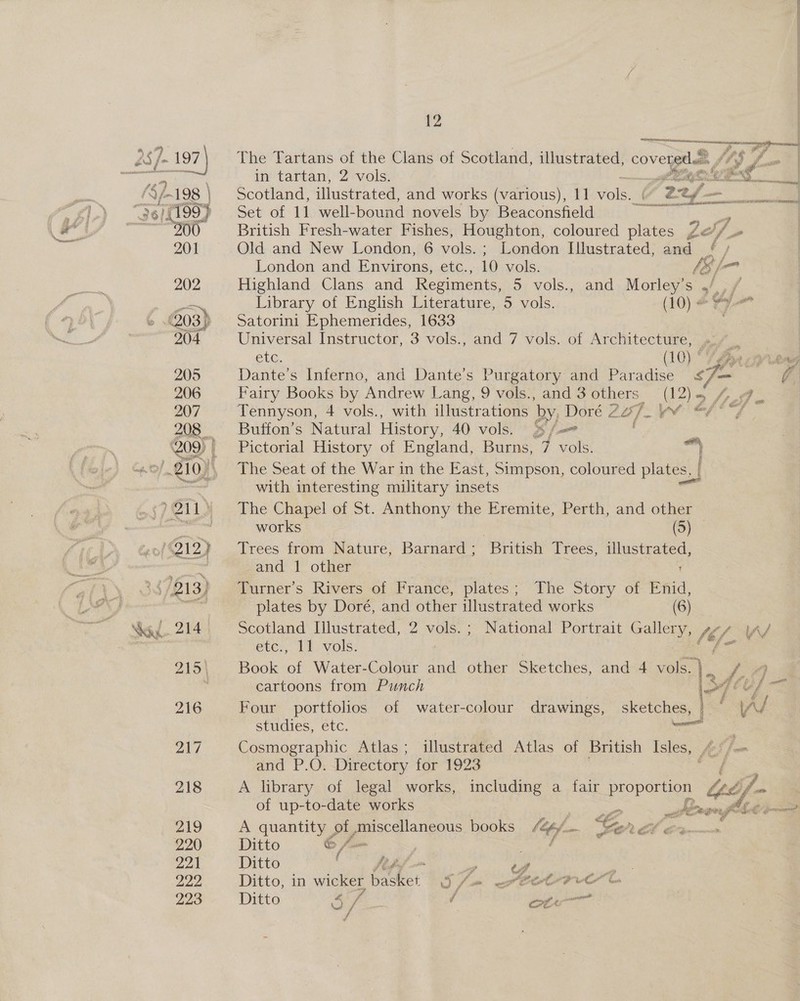 12
25/- 197 The Tartans of the Clans of Scotland, illustrated, covered
in tartan, 2 vols.
15/- 198 Scotland, illustrated, and works (various), 11 vols.
199 Set of 11 well-bound novels by Beaconsfield
200 British Fresh-water Fishes, Houghton, coloured plates
201 Old and New London, 6 vols. ; London Illustrated, and
London and Environs, etc., 10 vols.
202 Highland Clans and Regiments, 5 vols., and Morley's
Library of English Literature, 5 vols. (10)
203 Satorini Ephemerides, 1633
204 Universal Instructor, 3 vols., and 7 vols. of Architecture,
etc. (10)
205 Dante's Inferno, and Dante's Purgatory and Paradise
206 Fairy Books by Andrew Lang, 9 vols., and 3 others (12)
207 Tennyson, 4 vols., with illustrations by Doré
208 Buffon's Natural History, 40 vols. 5/-
209 Pictorial History of England, Burns, 7 vols.
210 The Seat of the War in the East, Simpson, coloured plates,
with interesting military insets
211 The Chapel of St. Anthony the Eremite, Perth, and other
works (5)
212 Trees from Nature, Barnard ; British Trees, illustrated,
and 1 other
213 Turner's Rivers of France, plates ; The Story of Enid,
plates by Doré, and other illustrated works (6)
214 Scotland Illustrated, 2 vols. ; National Portrait Gallery,
etc., 11 vols.
215 Book of Water-Colour and other Sketches, and 4 vols.
cartoons from Punch
216 Four portfolios of water-colour drawings, sketches,
studies, etc.
217 Cosmographic Atlas ; illustrated Atlas of British Isles,
and P.O. Directory for 1923
218 A library of legal works, including a fair proportion
of up-to-date works
219 A quantity of miscellaneous books
220 Ditto
221 Ditto
222 Ditto, in wicker basket 5/-
223 Ditto 5/-